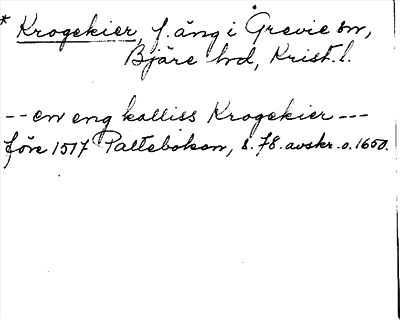 * Krogekier, f. äng i Grevie sn,
Bjäre hd, Krist. l.
-- en eng kalliss Krogekier ---
före 1517 Palteboken, s. 78. avskr. o. 1650.